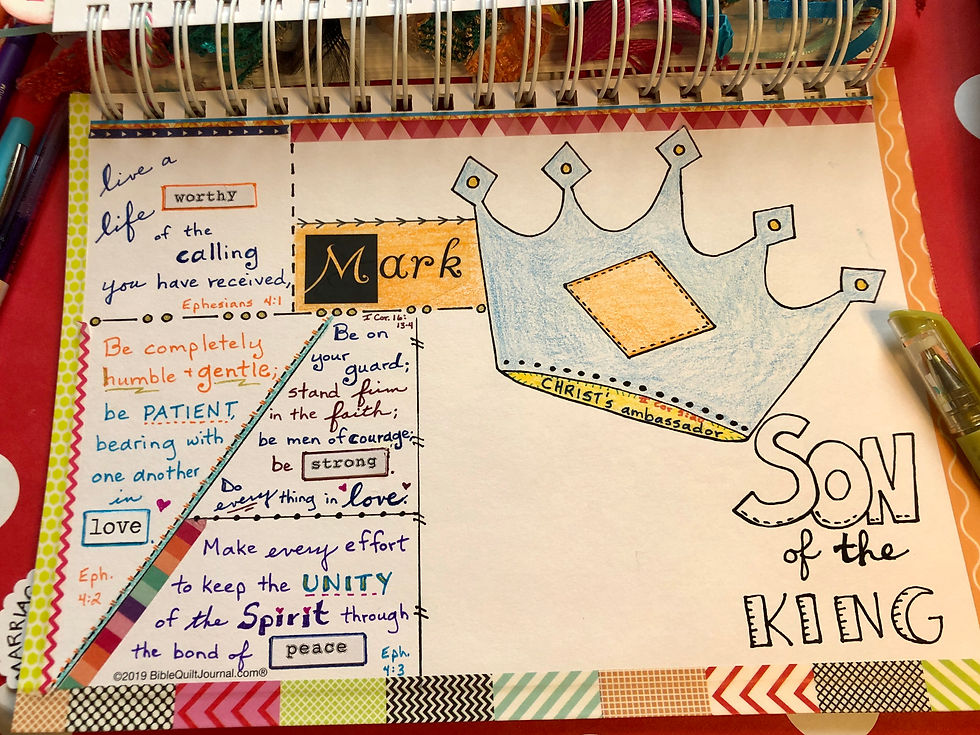 live a
worthy
life of the
calling
you have received,
Ephesians 4:1
Mark
Be completely
humble + gentle;
be PATIENT,
bearing with
one another
in
love.
Eph.
4:2
I Cor. 16:
13-4
Be on
your guard;
stand firm
in the faith;
be men of courage;
be strong.
Do
everything in love.
Make every effort
to keep the UNITY
of the Spirit through
the bond of peace
Eph.
4:3
©2019 BibleQuiltJournal.com®
CHRIST's ambassador
SON
of the
KING
MARRIAG